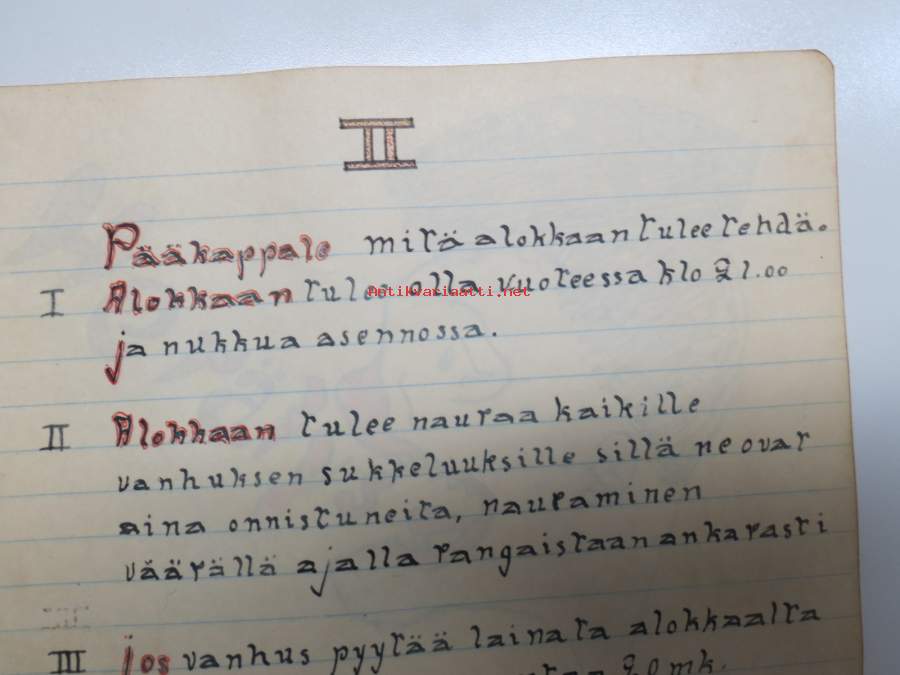 II
Pääkappale mitä alokkaan tulee tehdä.
I Alokkaan tulee olla vuoteessa klo 21.00
antikvariaatti.net
ja nukkua asennossa.
II Alokkaan tulee nauraa kaikille
vanhuksen sukkeluuksille sillä ne ovat
aina onnistuneita, nauraminen
väärällä ajalla rangaistaan ankarasti
III jos vanhus pyytää lainata alokkaalta
20 mk.